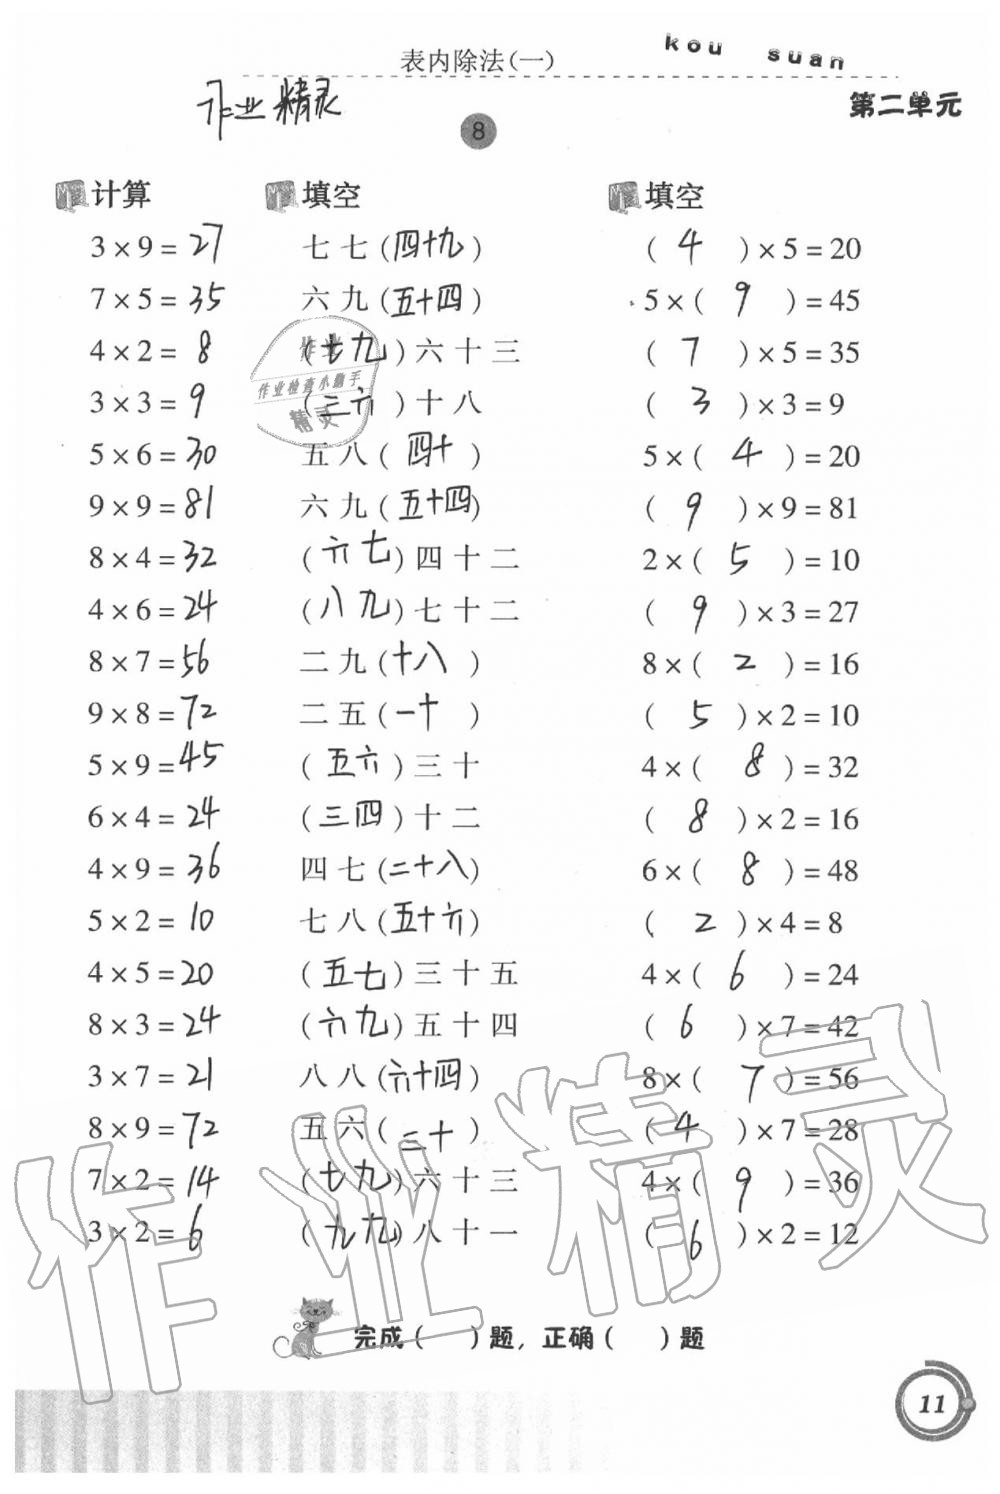 表内除法(一) kou suan
作业精灵
第二单元
8
计算 填空 填空
3×9=27 七七(四十九) (4)×5=20
7×5=35 六九(五十四) 5×(9)=45
4×2=8 (七九)六十三 (7)×5=35
3×3=9 (三六)十八 (3)×3=9
5×6=30 五八(四十) 5×(4)=20
9×9=81 六九(五十四) (9)×9=81
8×4=32 (六七)四十二 2×(5)=10
4×6=24 (八九)七十二 (9)×3=27
8×7=56 二九(十八) 8×(2)=16
9×8=72 二五(一十) (5)×2=10
5×9=45 (五六)三十 4×(8)=32
6×4=24 (三四)十二 (8)×2=16
4×9=36 四七(二十八) 6×(8)=48
5×2=10 七八(五十六) (2)×4=8
4×5=20 (五七)三十五 4×(6)=24
8×3=24 (六九)五十四 (6)×7=42
3×7=21 八八(六十四) 8×(7)=56
8×9=72 五六(三十) (4)×7=28
7×2=14 (七九)六十三 4×(9)=36
3×2=6 (九九)八十一 (6)×2=12
作业
作业检查小助手
精灵
作业精灵
完成( )题,正确( )题
11